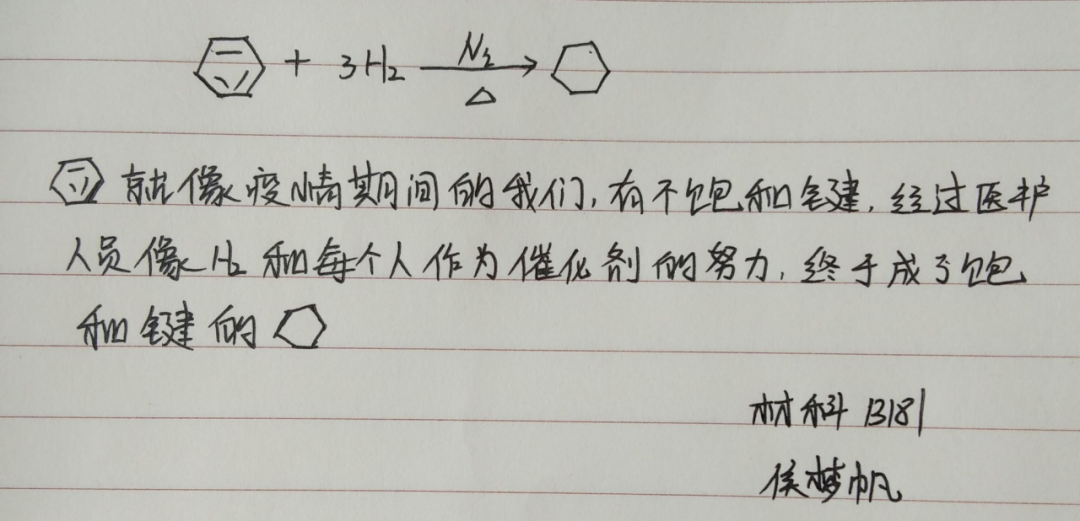 + 3H₂ Ni △ →
就像疫情期间的我们,有不饱和键,经过医护
人员像H₂和每个人作为催化剂的努力,终于成了饱
和键的
材科B181
侯梦帆